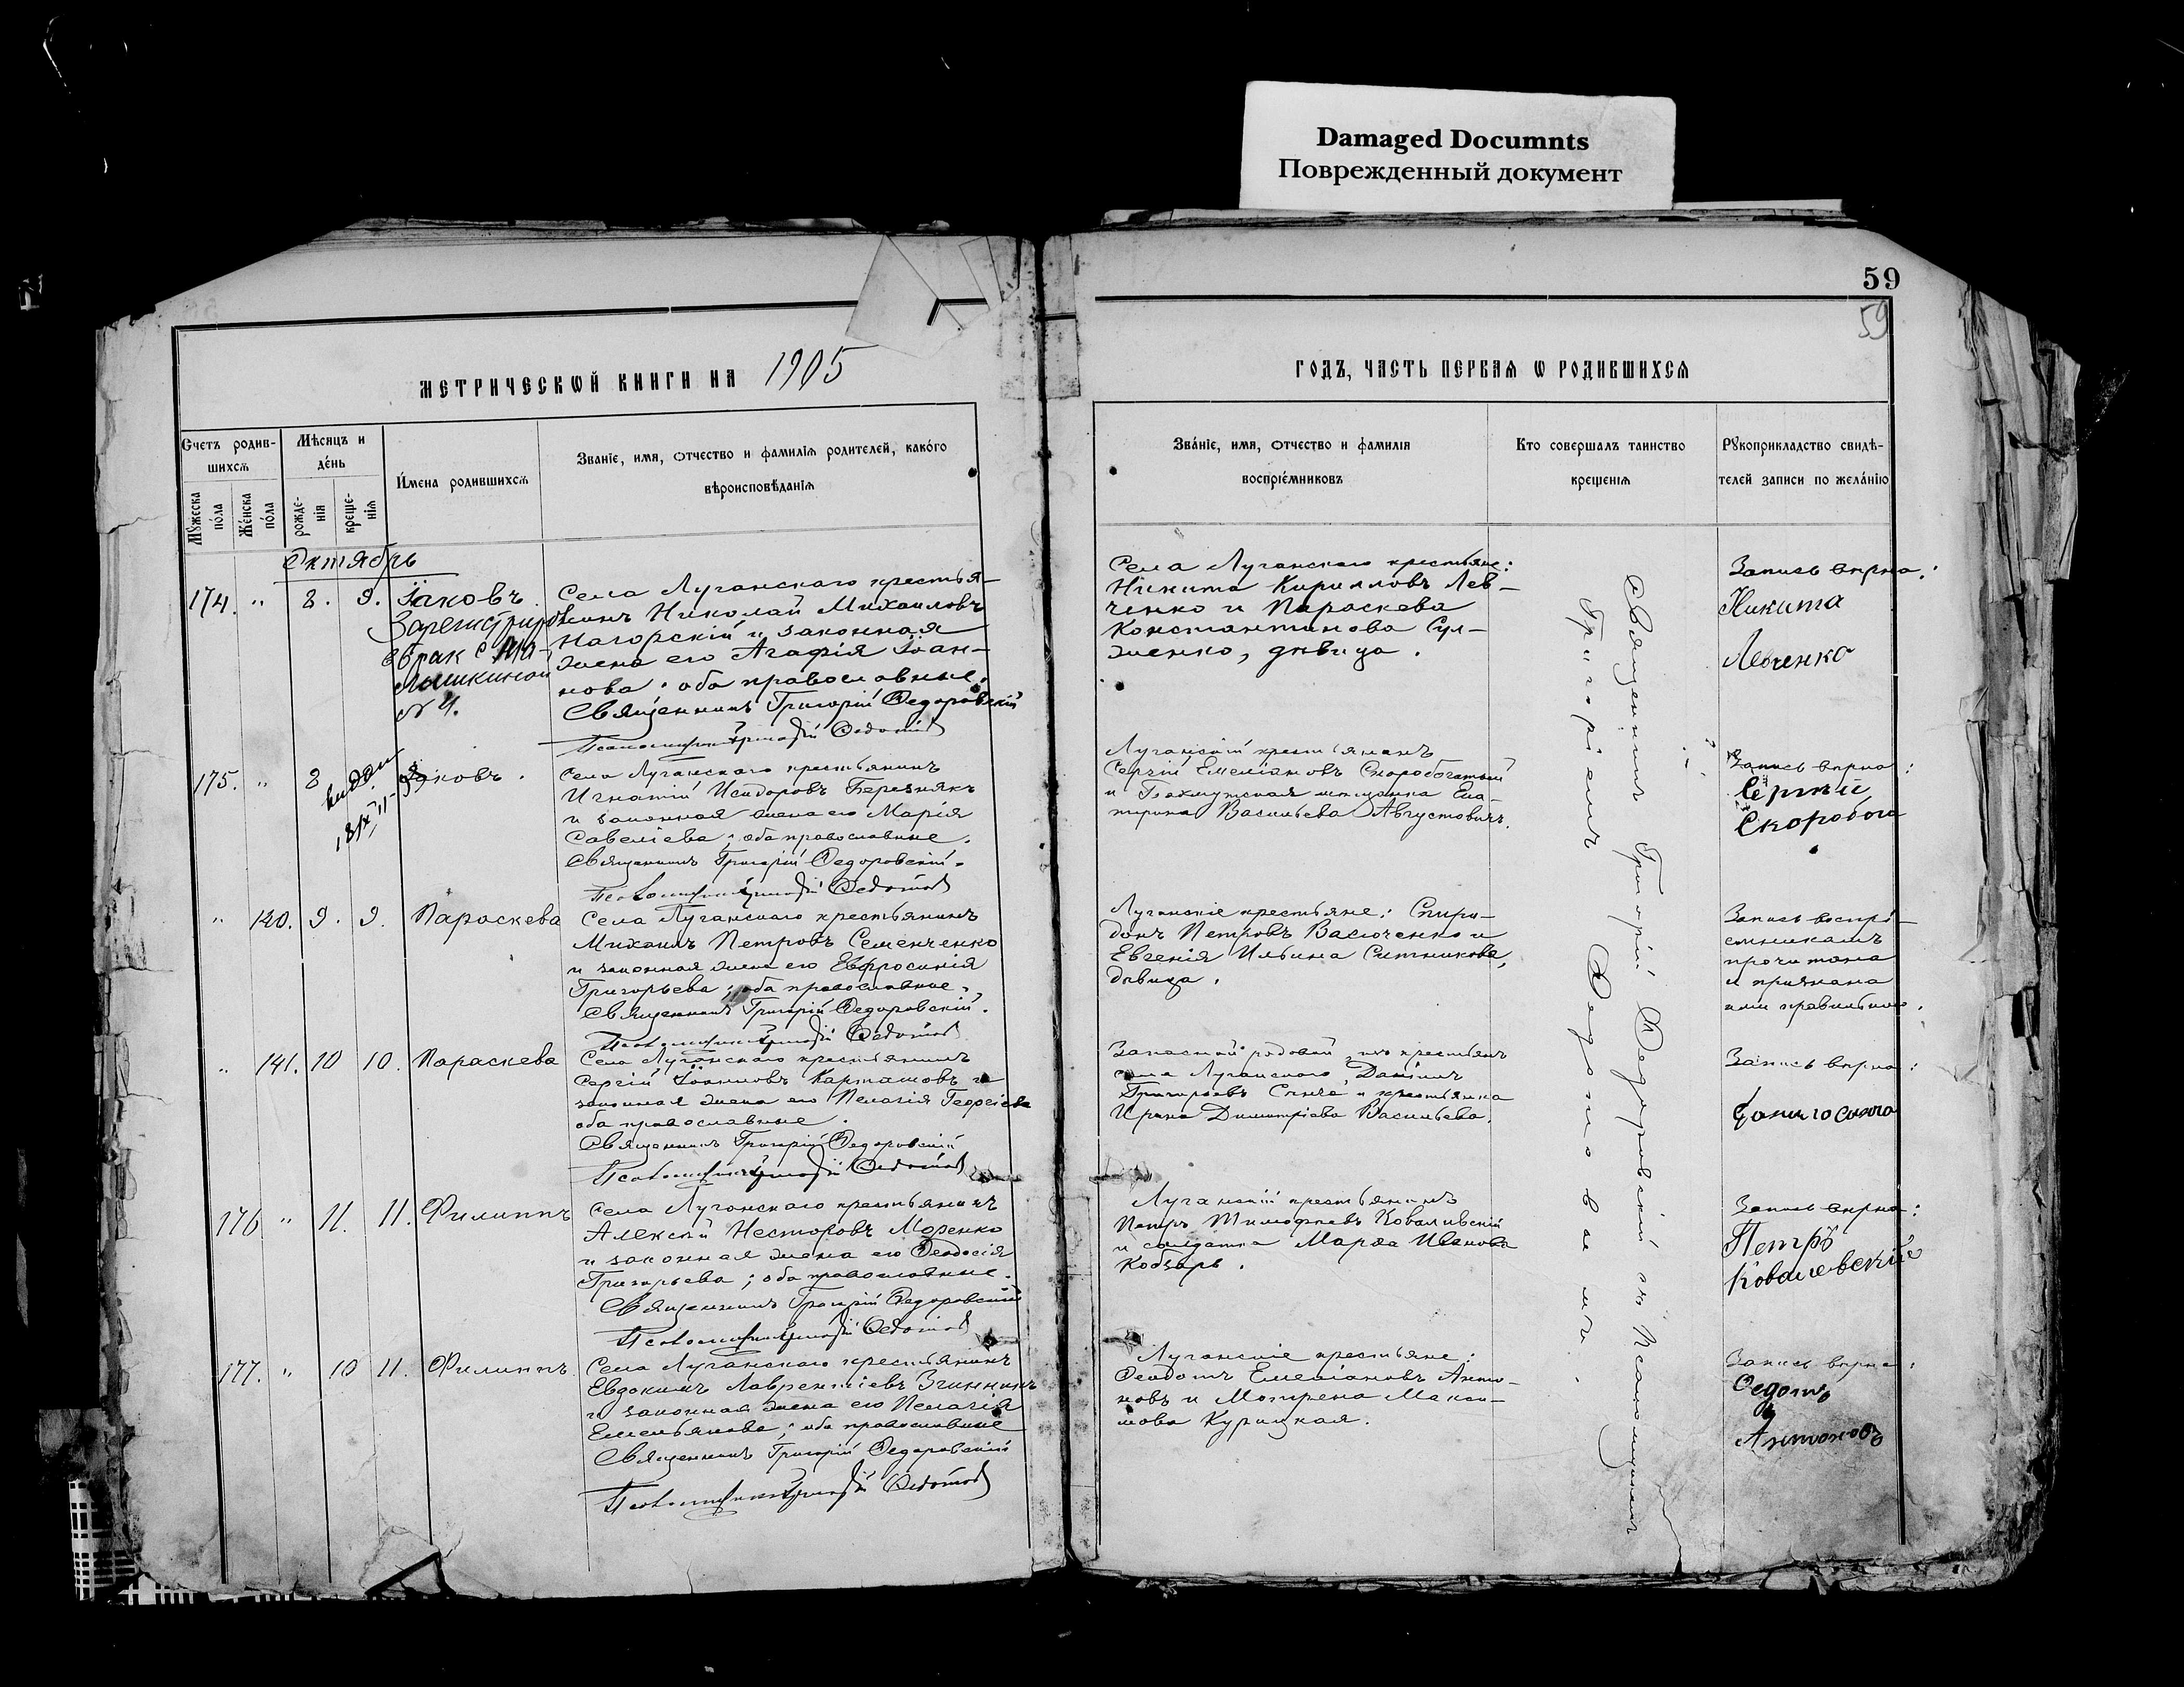 Damaged Documnts
Поврежденный документ
59
59
МЕТРИЧЕСКѠЙ КНИГИ НА 1905
ГОДЪ, ЧАСТЬ ПЕРВАѦ Ѡ РОДИВШИХСѦ
Счетъ родив-
шихсѧ
Мꙋжеска
по́ла
Же́нска
по́ла
Мѣсяцъ и
де́нь
рожде-
нія
креще-
нія
И́мена родившихсѧ
Званіе, имя, отчество и фамиліѧ родителей, како́го
вѣроисповѣданіѧ
Зва́ніе, имя, отчество и фамилія
воспріе́мниковъ
Кто совершалъ таинство
крещенія
Рꙋкоприкладство свидѣ-
телей записи по жела́нію
Октябрь
174. " 8. 9. Іаковъ.
Зарегистриро
брак с
№ 4.
Села Луганскаго крестья-
нинъ Николай Михаиловъ
Нагорскій и законная
жена его Агафія Іоан-
нова; оба православные.
Священникъ Григорій Федоровскій
Псаломщикъ Григорій Федотов
Села Луганскаго крестьяне:
Никита Кирилловъ Лев-
ченко и Параскева
Константинова Сул-
женко, дѣвица.
Запись вѣрна:
Никита
Левченко
175. " 8 Іаковъ.
Села Луганскаго крестьянинъ
Игнатій Исидоровъ Березнякъ
и законная жена его Марія
Савеліева; оба православные.
Священникъ Григорій Федоровскій.
Псаломщикъ Григорій Федотов
Луганскій крестьянинъ
Сергій Емеліановъ Скоробогатый
и Бахмутская мѣщанка Ека-
терина Васильева Августовичъ.
Запись вѣрна:
Сергѣй
Скоробога
" 140. 9. 9. Параскева
Села Луганскаго крестьянинъ
Михаилъ Петровъ Семенченко
и законная жена его Евфросинія
Григорьева; оба православные.
Священникъ Григорій Федоровскій.
Псаломщикъ Григорій Федотов
Луганскіе крестьяне: Спири-
донъ Петровъ Васюченко и
Евгенія Ильина Ситникова,
дѣвица.
Запись воспрі-
емникамъ
прочитана
и признана
ими правильною.
" 141. 10 10. Параскева
Села Луганскаго крестьянинъ
Сергій Іоанновъ Карташовъ и
законная жена его Пелагія Георгіева
оба православные.
Священникъ Григорій Федоровскій
Псаломщикъ Григорій Федотов
Запасной рядовой изъ крестьянъ
села Луганскаго Даніилъ
Григорьевъ и крестьянка
Ирина Димитріева Васильева.
Запись вѣрна:
176 " 11. 11. Филиппъ
Села Луганскаго крестьянинъ
Алексій Несторовъ Моренко
и законная жена его Феодосія
Григорьева; оба православные.
Священникъ Григорій Федоровскій
Псаломщикъ Григорій Федотов
Луганскій крестьянинъ
Петръ Тимофеевъ Ковалевскій
и солдатка Марѳа Иванова
Кобзарь.
Запись вѣрна:
Петръ
Ковалевскій
177. " 10 11. Филиппъ.
Села Луганскаго крестьянинъ
Евдокимъ Лаврентіевъ
и законная жена его Пелагія
Емельянова; оба православные
Священникъ Григорій Федоровскій
Псаломщикъ Григорій Федотов
Луганскіе крестьяне:
Феодотъ Емеліановъ Анто-
новъ и Мотрена Макси-
мова Курицкая.
Запись вѣрна:
Федотъ
Антоновъ
Священникъ Григорій Федоровскій съ Псаломщикомъ
Григоріемъ Федотовымъ.